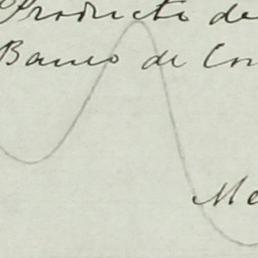 Producto de
Banco de Con
Me